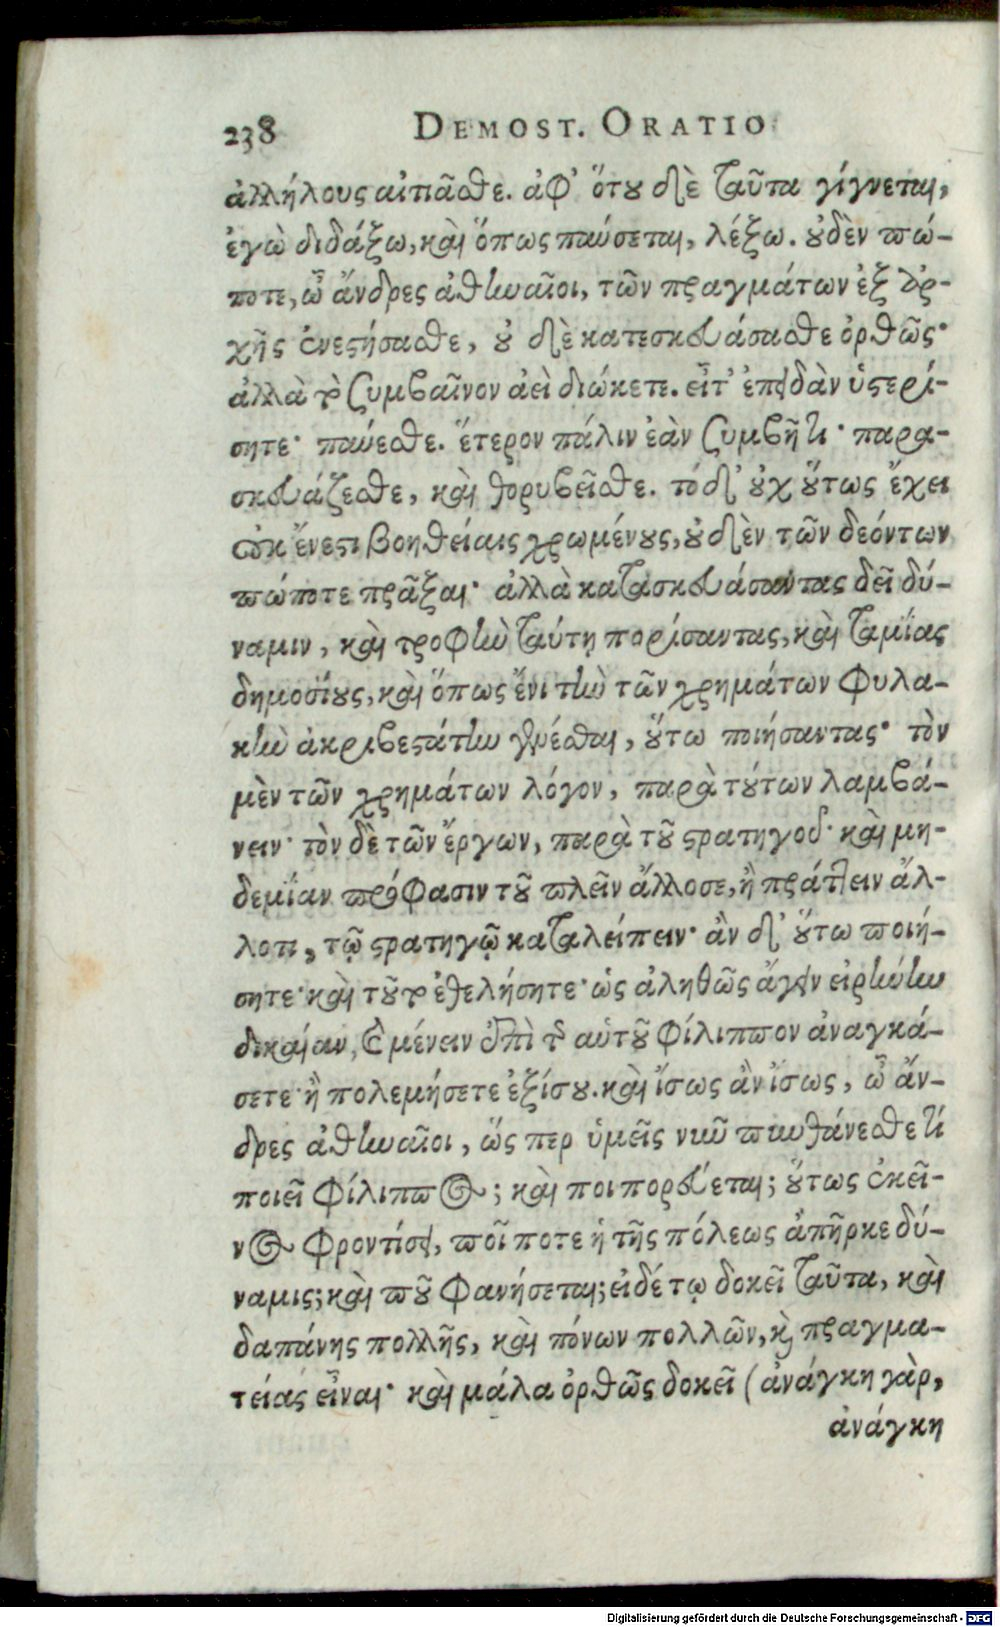 238 DEMOST. ORATIO
ἀλλήλους αἰτιᾶσθε. ἀφ' ὅτου δὲ ταῦτα γίγνεται,
ἐγὼ διδάξω, καὶ ὅπως παύσεται, λέξω. οὐδὲν πώ-
ποτε, ὦ ἄνδρες ἀθηναῖοι, τῶν πραγμάτων ἐξ ἀρ-
χῆς ἐνεστήσασθε, οὐδὲ κατεσκευάσασθε ὀρθῶς·
ἀλλὰ τὸ συμβαῖνον ἀεὶ διώκετε. εἶτ' ἐπειδὰν ὑστερί-
σητε· παύεσθε. ἕτερον πάλιν ἐὰν συμβῇ τι· παρα-
σκευάζεσθε, καὶ θορυβεῖσθε. τό δ' οὐχ οὕτως ἔχει
οὐκ ἔνεστι βοηθείαις χρωμένους, οὐδὲν τῶν δεόντων
πώποτε πρᾶξαι· ἀλλὰ κατασκευάσαντας δεῖ δύ-
ναμιν, καὶ τροφὴν ταύτῃ πορίσαντας, καὶ ταμίας
δημοσίους, καὶ ὅπως ἔνι τὴν τῶν χρημάτων φυλα-
κὴν ἀκριβεστάτην γενέσθαι, οὕτω ποιήσαντας· τὸν
μὲν τῶν χρημάτων λόγον, παρὰ τούτων λαμβά-
νειν· τὸν δὲ τῶν ἔργων, παρὰ τοῦ στρατηγοῦ· καὶ μη-
δεμίαν πρόφασιν τοῦ πλεῖν ἄλλοσε, ἢ πράττειν ἄλ-
λοτι, τῷ στρατηγῷ καταλείπειν· ἂν δ' οὕτω ποιή-
σητε· καὶ τοῦτο ἐθελήσητε· ὡς ἀληθῶς ἄγειν εἰρήνην
δικαίαν, καὶ μένειν ἐπὶ τῆς αὑτοῦ Φίλιππον ἀναγκά-
σετε· ἢ πολεμήσετε ἐξίσου. καὶ ἴσως ἂν ἴσως, ὦ ἄν-
δρες ἀθηναῖοι, ὥς περ ὑμεῖς νῦν πυνθάνεσθε τί
ποιεῖ Φίλιππος; καὶ ποι πορεύεται; οὕτως ἐκεῖ-
νος φροντίσει, ποῖ ποτε ἡ τῆς πόλεως ἀπῆρκε δύ-
ναμις; καὶ ποῦ φανήσεται; εἰ δέ τῳ δοκεῖ ταῦτα, καὶ
δαπάνης πολλῆς, καὶ πόνων πολλῶν, καὶ πραγμα-
τείας εἶναι· καὶ μάλα ὀρθῶς δοκεῖ (ἀνάγκη γὰρ,
ἀνάγκη
Digitalisierung gefördert durch die Deutsche Forschungsgemeinschaft - DFG